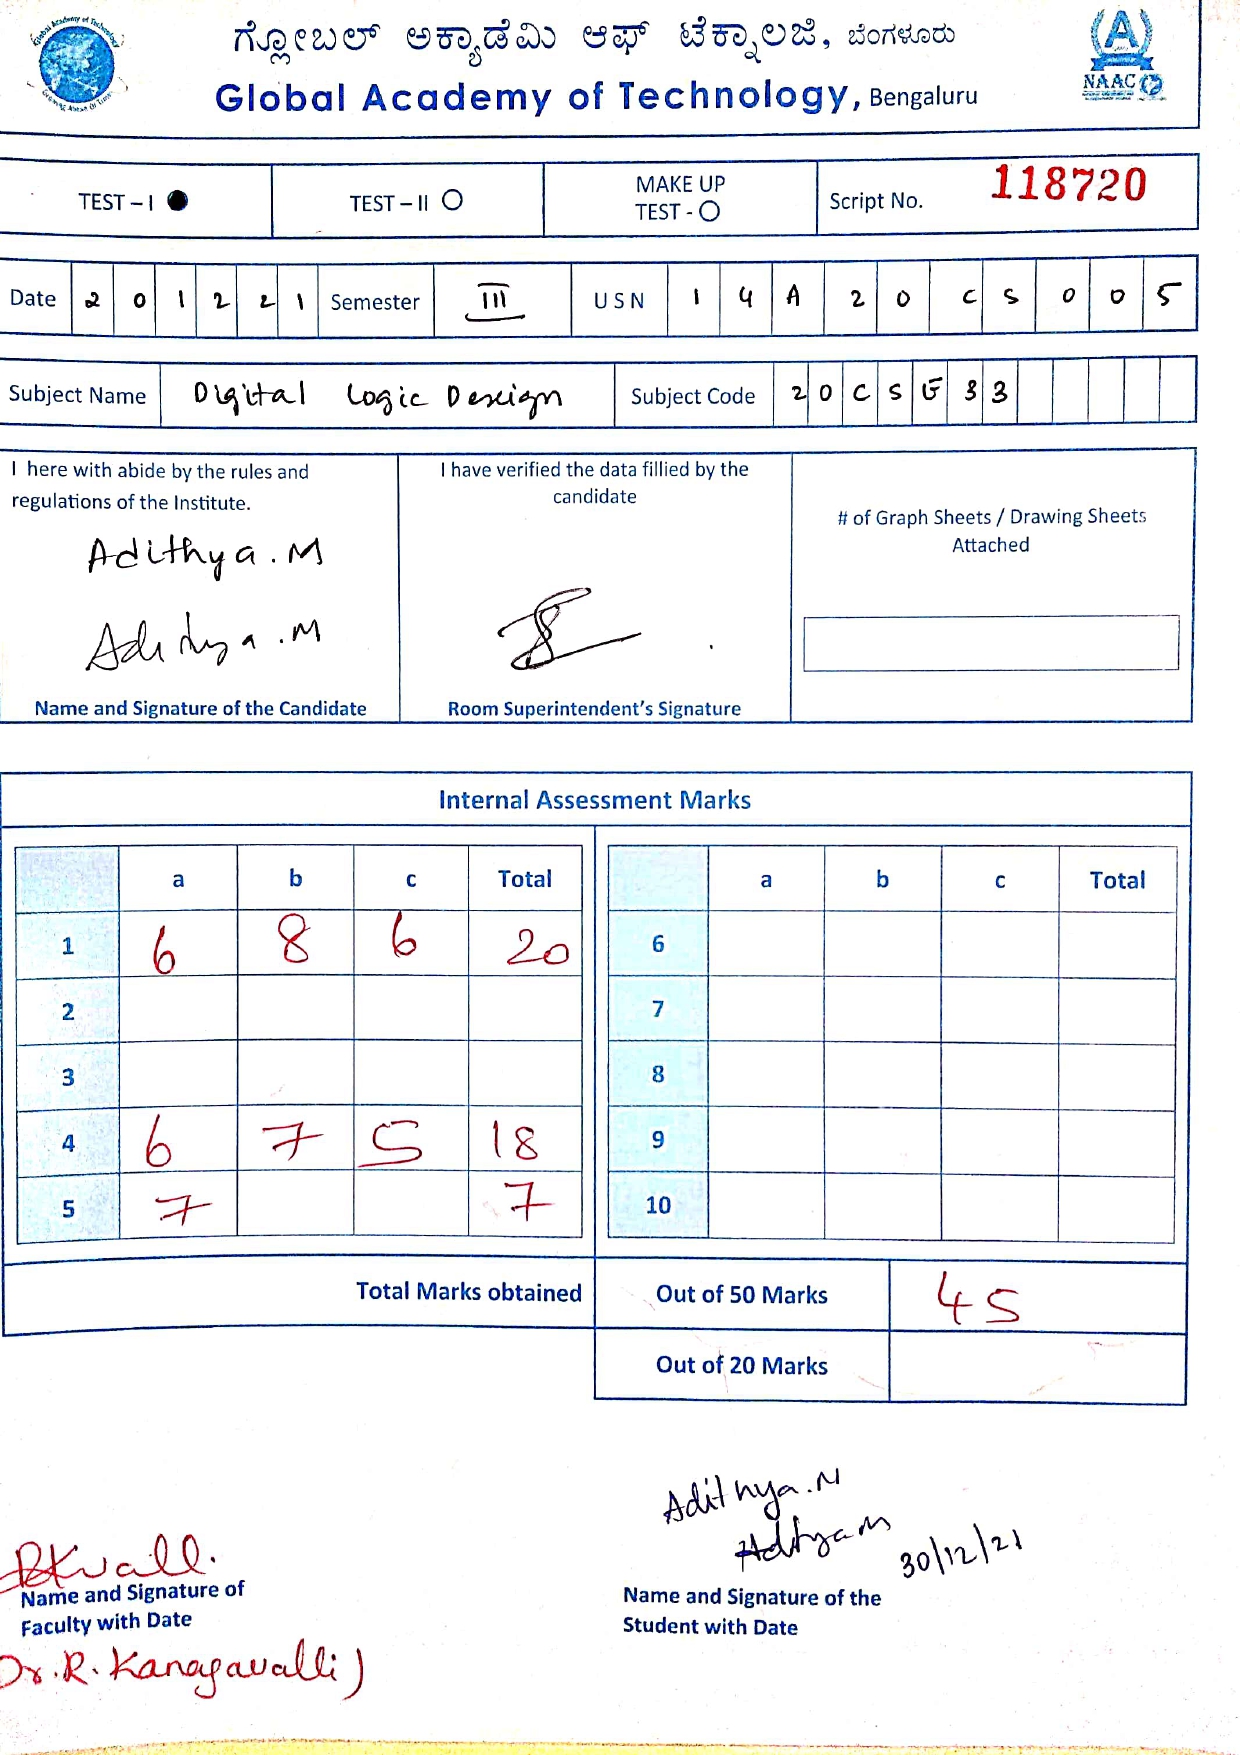 ಗ್ಲೋಬಲ್ ಅಕ್ಯಾಡೆಮಿ ಆಫ್ ಟೆಕ್ನಾಲಜಿ, ಬೆಂಗಳೂರು
Global Academy of Technology, Bengaluru
NAAC
TEST – I TEST – II MAKE UP TEST - Script No. 118720
Date 2 0 1 2 2 1 Semester III USN 1 4 A 2 0 C S 0 0 5
Subject Name Digital Logic Dexign Subject Code 2 0 C S E 3 3
I here with abide by the rules and
regulations of the Institute.
Adithya.M
Adithya.M
Name and Signature of the Candidate
I have verified the data fillied by the
candidate
Room Superintendent's Signature
# of Graph Sheets / Drawing Sheets
Attached
Internal Assessment Marks
a b c Total a b c Total
1 6 8 6 20 6
2 7
3 8
4 6 7 5 18 9
5 7 7 10
Total Marks obtained Out of 50 Marks 45
Out of 20 Marks
Adithya.M
Adithya M
30/12/21
Name and Signature of
Faculty with Date
Name and Signature of the
Student with Date
Dr. R. Kanagavalli)